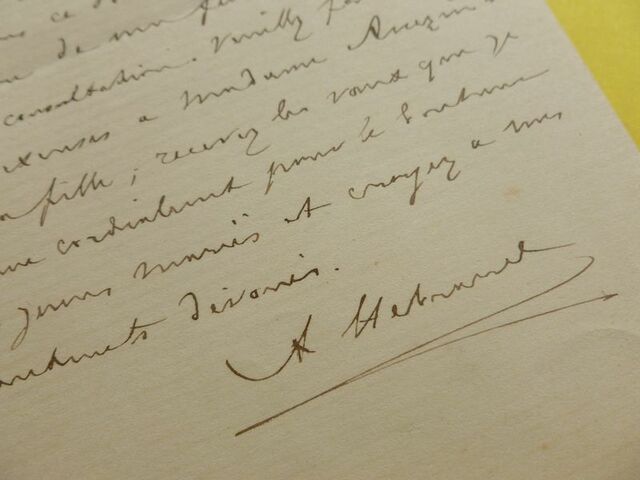 ce
de ma
consultation. Veuillez
excuses à Madame
fille, recevez les vœux que je
cordialement pour le bonheur
jeunes mariés et croyez à mes
dévoués.
A Hebrard